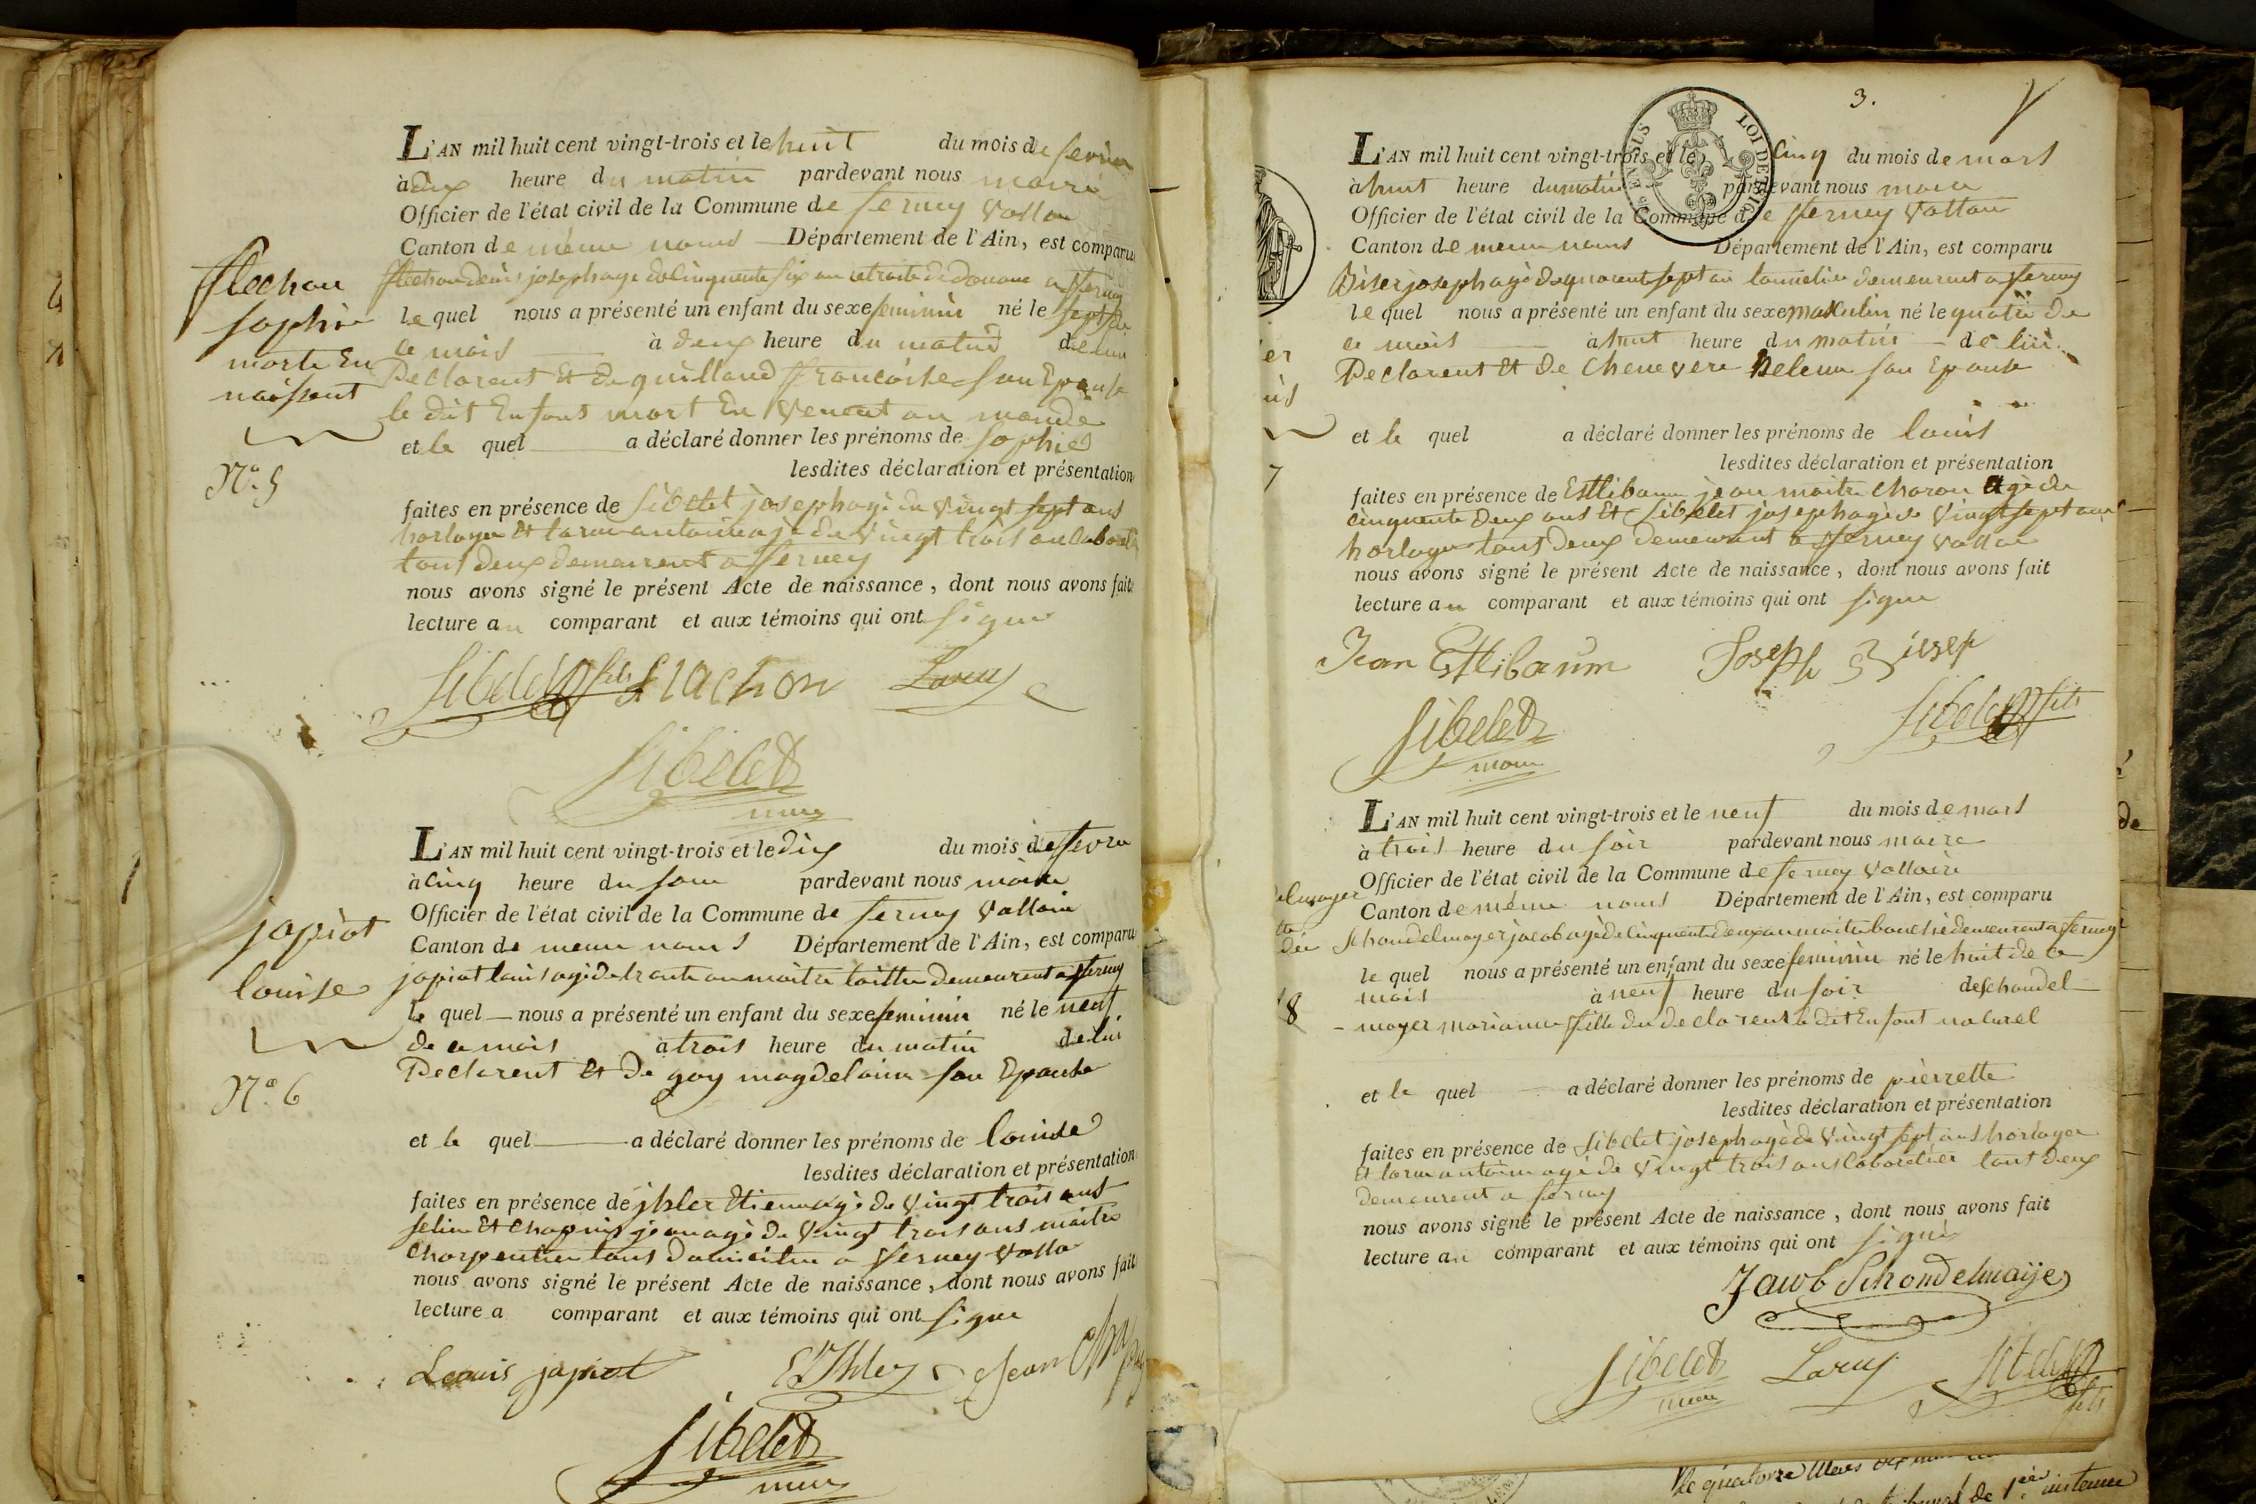 flechon
sophie
morte En
naissent
N.o 5
L'AN mil huit cent vingt-trois et le huit du mois de fevrier
à dix heure du matin pardevant nous maire
Officier de l'état civil de la Commune de ferney Voltaire
Canton de meme noms Département de l'Ain, est comparu
flechon denis joseph age de cinquante six an retraite de douane a ferney
le quel nous a présenté un enfant du sexe feminin né le sept de
ce mois à deux heure du matin de lui
Declarent Et de guilland francoise son Epouse
le dit Enfant mort En Venent au monde
et le quel a déclaré donner les prénoms de sophie
lesdites déclaration et présentation
faites en présence de Sibelet joseph agé de Vingt sept ans
horloger Et antoine agé de Vingt trois an
tous deux demeurent a ferney
nous avons signé le présent Acte de naissance, dont nous avons fait
lecture au comparant et aux témoins qui ont signe
Sibelet fils flachon Larue
Sibelet
maire
japiot
louise
N.o 6
L'AN mil huit cent vingt-trois et le dix du mois de fevrie
à cinq heure du soir pardevant nous maire
Officier de l'état civil de la Commune de ferney Voltaire
Canton de meme noms Département de l'Ain, est comparu
japiot louis agé de trante an maitre demeurent a ferney
le quel nous a présenté un enfant du sexe feminin né le neuf
de ce mois à trois heure du matin de lui
Declarent Et de goy magdelaine son Epouse
et le quel a déclaré donner les prénoms de louise
lesdites déclaration et présentation
faites en présence de Etienne agé de Vingt trois ans
Et Chapuis jean agé de Vingt trois ans maitre
Charpentier tous a ferney Volta
nous avons signé le présent Acte de naissance, dont nous avons fait
lecture a comparant et aux témoins qui ont signe
Louis japiot Jean Chapuis
Sibelet
maire
3.
EN SUS
LOI DE
L'AN mil huit cent vingt-trois et le cinq du mois de mars
à huit heure du matin pardevant nous maire
Officier de l'état civil de la Commune de ferney Voltaire
Canton de meme noms Département de l'Ain, est comparu
joseph agé de quarente sept an demeurent a ferney
le quel nous a présenté un enfant du sexe masculin né le quatre de
ce mois à huit heure du matin de lui
Declarent Et de Chenevere helene son Epouse
et le quel a déclaré donner les prénoms de louis
lesdites déclaration et présentation
7
faites en présence de Estlibaum jean maitre charon agé de
cinquente Deux ans Et Sibelet joseph agé de Vingt sept ans
horloger tous Deux demeurant a ferney Voltaire
nous avons signé le présent Acte de naissance, dont nous avons fait
lecture au comparant et aux témoins qui ont signe
Jean Estlibaum Joseph
Sibelet
maire
Sibelet fils
L'AN mil huit cent vingt-trois et le neuf du mois de mars
à trois heure du soir pardevant nous maire
Officier de l'état civil de la Commune de ferney Voltaire
Canton de méme noms Département de l'Ain, est comparu
Schondelmayer jacob agé de cinquente deux an maitre demeurent a ferney
le quel nous a présenté un enfant du sexe feminin né le huit de ce
8
mois à neuf heure du soir de Schondel
mayer marianne fille du declarent le dit Enfant naturel
et le quel a déclaré donner les prénoms de pierrette
lesdites déclaration et présentation
faites en présence de Sibelet joseph agé de Vingt sept ans horloger
Et antoine agé de Vingt trois ans tous deux
demeurent a ferney
nous avons signé le présent Acte de naissance, dont nous avons fait
lecture au comparant et aux témoins qui ont signé
Jacob Schondelmaije
Sibelet
maire
Larue
Sibelet
fils
le quatorze Mars
de 1ère instance